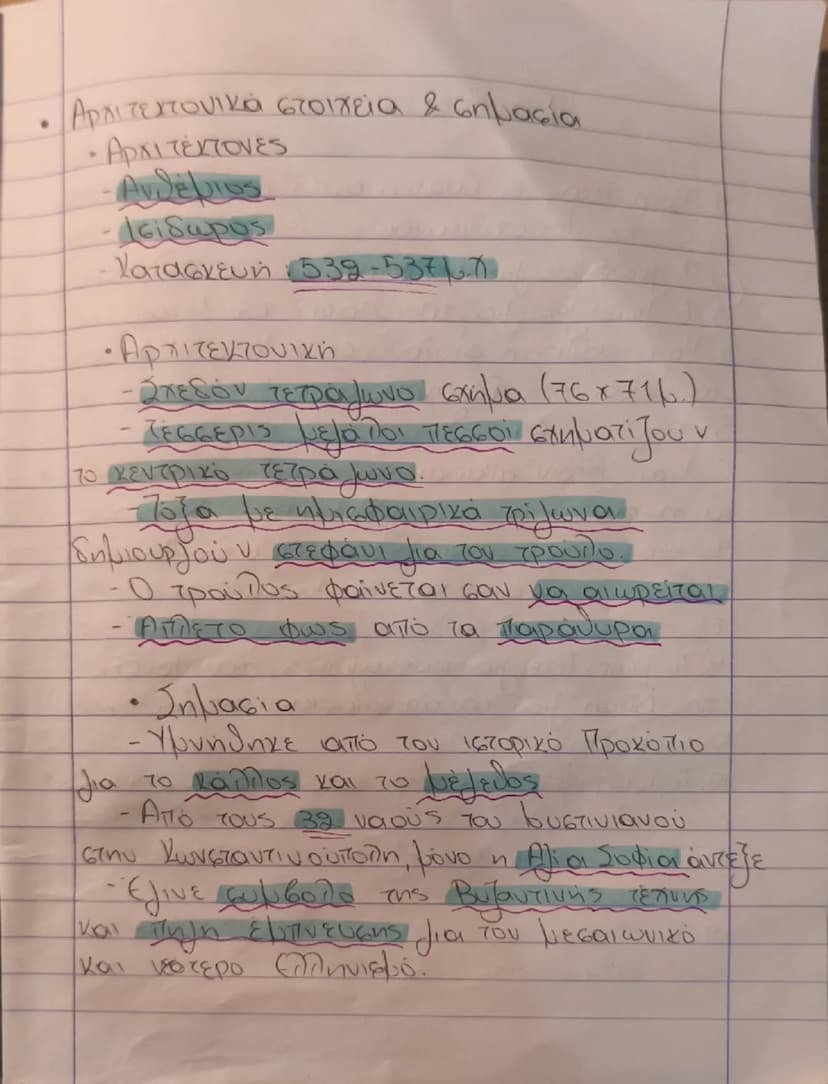 • Αρχιτεκτονικά στοιχεία & σημασία
• Αρχιτέκτονες
- Ανθέμιος
- Ισίδωρος
- Κατασκευή : 532 - 537 μ.Χ
• Αρχιτεκτονική
- Σχεδόν τετράγωνο σχήμα (76 x 71 μ.)
- Τέσσερις μεγάλοι πεσσοί σχηματίζουν
το κεντρικό τετράγωνο.
- Τόξα με ημισφαιρικά τρίγωνα
δημιουργούν στεφάνι για τον τρούλο.
- Ο τρούλος φαίνεται σαν να αιωρείται
- Άπλετο φως από τα παράθυρα
• Σημασία
- Υμνήθηκε από τον ιστορικό Προκόπιο
για το κάλλος και το μέγεθος
- Από τους 32 ναούς του Ιουστινιανού
στην Κωνσταντινούπολη, μόνο η Αγία Σοφία άντεξε
- Έγινε σύμβολο της Βυζαντινής τέχνης
και πηγή έμπνευσης για τον μεσαιωνικό
και νεότερο Ελληνισμό.